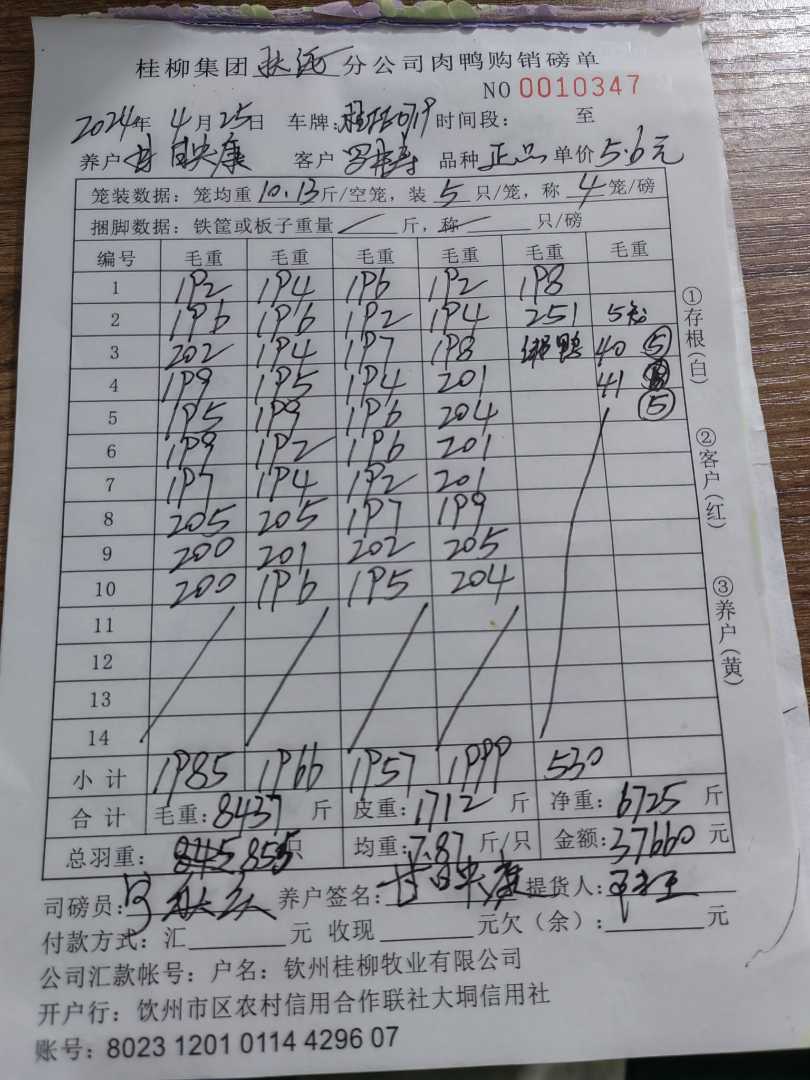 桂柳集团 分公司肉鸭购销磅单
NO 0010347
2024年 4月25日 车牌: 0719 时间段: 至
养户 甘 康 客户 罗 寿 品种 正品 单价 5.6元
笼装数据：笼均重 10.13 斤/空笼，装 5 只/笼，称 4 笼/磅
捆脚数据：铁筐或板子重量 / 斤，称 只/磅
编号 毛重 毛重 毛重 毛重 毛重 毛重
1 192 194 196 192 198
2 196 196 192 194 251 5笼
3 202 194 197 198 鸭 40 ⑤
4 199 195 194 201 41
5 195 199 196 204 ⑤
6 199 192 196 201
7 197 194 192 201
8 205 205 197 199
9 200 201 202 205
10 200 196 195 204
11
12
13
14
小计 1985 1966 1957 1999 530
合计 毛重: 8437 斤 皮重: 1712 斤 净重: 6725 斤
总羽重: 845 855 只 均重: 7.87 斤/只 金额: 37660 元
司磅员: 养户签名: 甘 康 提货人:
付款方式：汇 元 收现 元欠（余）: 元
公司汇款帐号：户名：钦州桂柳牧业有限公司
开户行：饮州市区农村信用合作联社大垌信用社
账号：8023 1201 0114 4296 07
①存根(白)
②客户(红)
③养户(黄)